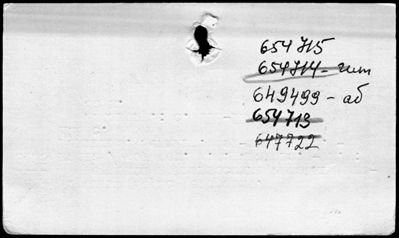 654715
654714 - чит
649499 - аб
654713
647722